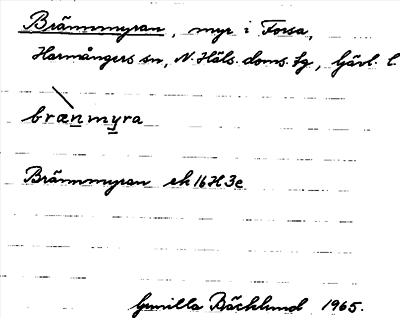 Brännmyran, myr i Forsa,
Harmångers sn, N. Häls. doms. sg, Gävl. l.
brænmyra
Brännmyran ek 16H3e
Gunilla Bäcklund 1965.